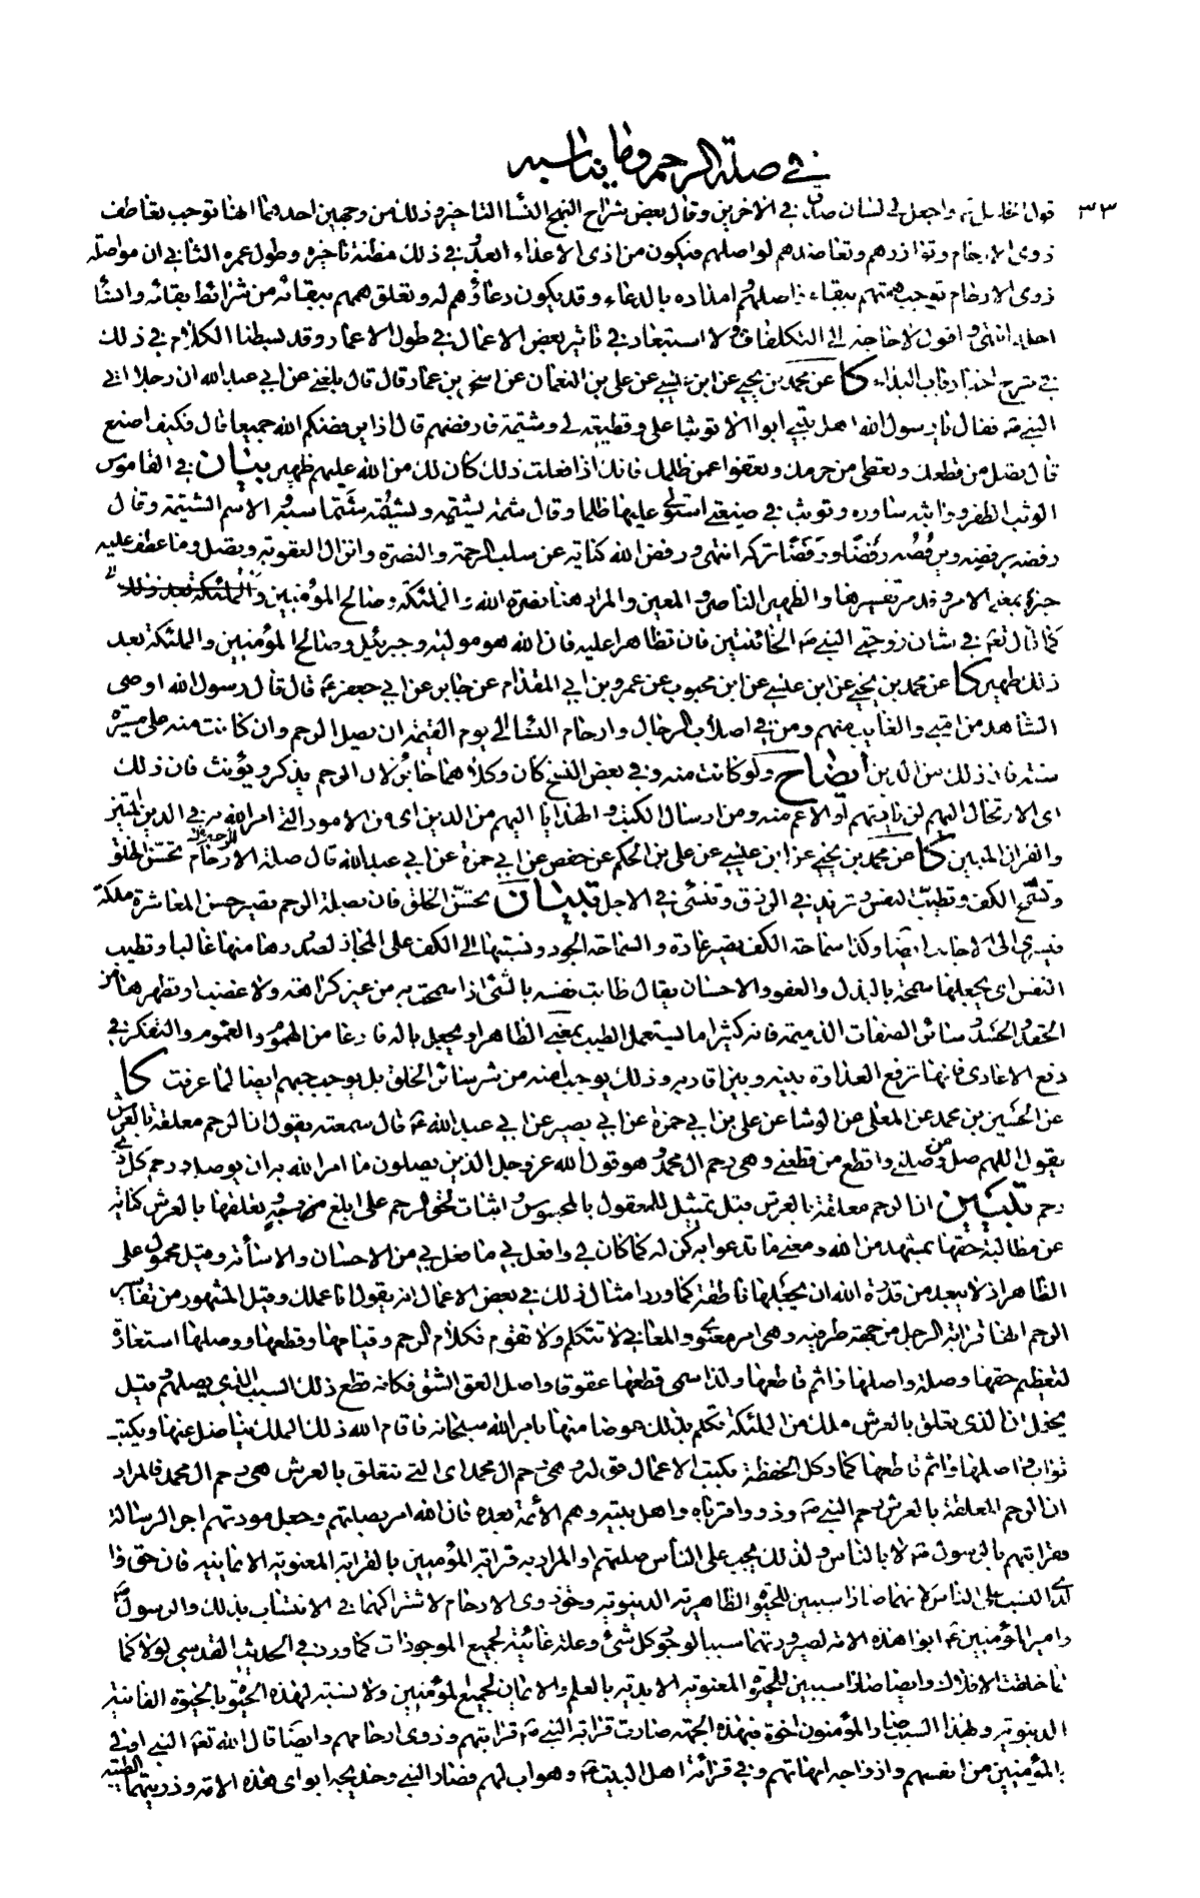 في صلة الرحم وما يناسبه
٣٣
قول الخليل واجعل لي لسان صدق في الاخرين وقال بعض شراح النهج النسأ التاخير وذلك من وجهين احدهما انها توجب تعاطف
ذوي الارحام وتوازرهم وتعاضدهم لواصلهم فيكون من اذى الاعداء ابعد وفي ذلك مظنة تاخيره وطول عمره الثاني ان مواصلة
ذوي الارحام توجب همتهم ببقاء واصلهم وامداده بالدعاء وقد يكون دعاؤهم له وتعلق هممهم ببقائه من شرائط بقائه وانساء
اجله انتهى واقول لا حاجة الى التكلفات ولا استبعاد في تاثير بعض الاعمال في طول الاعمار وقد بسطنا الكلام في ذلك
في شرح اخبار باب البداء كا عن محمد بن يحيى عن ابن عيسى عن علي بن النعمان عن اسحق بن عمار قال قال بلغني عن ابي عبد الله ان رجلا اتى
النبي ص فقال يا رسول الله اهل بيتي ابوا الا توثبا علي وقطيعة لي وشتيمة فارفضهم قال اذا يرفضكم الله جميعا قال فكيف اصنع
قال تصل من قطعك وتعطي من حرمك وتعفو عمن ظلمك فانك اذا فعلت ذلك كان لك من الله عليهم ظهير بيان في القاموس
الوثب الظفر وواثبه ساوره وتوثب في ضيعتي استولى عليها ظلما وقال شتمه يشتمه ويشتمه شتما سبه والاسم الشتيمة وقال
رفضه يرفضه ويرفضه رفضا ورفضا تركه انتهى ورفض الله كناية عن سلب الرحمة والنصرة وانزال العقوبة وتصل وما عطف عليه
خبر بمعنى الامر وقد مر تفسيرها والظهير الناصر والمعين والمراد هنا نصرة الله والملئكة وصالح المؤمنين
كما قال تعالى في شان زوجتي النبي ص الخائنتين فان تظاهرا عليه فان الله هو موليه وجبرئيل وصالح المؤمنين والملئكة بعد
ذلك ظهير كا عن محمد بن يحيى عن ابن عيسى عن ابن محبوب عن عمرو بن ابي المقدام عن جابر عن ابي جعفر ع قال قال رسول الله اوصي
الشاهد من امتي والغايب منهم ومن في اصلاب الرجال وارحام النسا الى يوم القيمة ان يصل الرحم وان كانت منه على مسيرة
سنة فان ذلك من الدين ايضاح ولو كانت منه وفي بعض النسخ كان وكلاهما جائز لان الرحم يذكر ويؤنث فان ذلك
اي الارتحال اليهم لزيارتهم او الاعم منه ومن ارسال الكتب والهدايا اليهم من الدين اي من الامور التي امر الله به في الدين المتين
والقران المبين كا عن محمد بن يحيى عن ابن عيسى عن علي بن الحكم عن حفص عن ابي حمزة عن ابي عبد الله قال صلة الارحام تحسن الخلق
وتسمح الكف وتطيب النفس وتزيد في الرزق وتنسئ في الاجل تبيان تحسن الخلق فان بصلة الرحم تصير حسن المعاشرة ملكة
فيسري الى الاجانب ايضا وكذا سماحة الكف تصير عادة والسماحة الجود ونسبتها الى الكف على المجاز لصدورها منها غالبا وتطيب
النفس اي يجعلها سمحة بالبذل والعفو والاحسان يقال طابت نفسه بالشئ اذا سمحت به من غير كراهة ولا غضب او تطهرها من
الحقد والحسد وسائر الصفات الذميمة فانه كثيرا ما يستعمل الطيب بمعنى الطاهر او يجعل باله فارغا من الهموم والغموم والتفكر في
دفع الاعادي فانها ترفع العداوة بينه وبين اقاربه وذلك يوجب امنه من شر سائر الخلق بل يوجب حبهم ايضا لما عرفت كا
عن الحسين بن محمد عن المعلى عن الوشا عن علي بن ابي حمزة عن ابي بصير عن ابي عبد الله ع قال سمعته يقول ان الرحم معلقة بالعرش
يقول اللهم صل من وصلني واقطع من قطعني وهي رحم ال محمد وهو قول الله عز وجل الذين يصلون ما امر الله به ان يوصل ورحم كل ذي
رحم تبيين ان الرحم معلقة بالعرش قيل تمثيل للمعقول بالمحسوس واثبات لحق الرحم على ابلغ وجه وتعلقها بالعرش كناية
عن مطالبة حقها بمشهد من الله ومعنى ما تدعو به كن له كما كان لي وافعل به ما فعل بي من الاحسان والاساءة وقيل محمول على
الظاهر اذ لا يبعد من قدرة الله ان يجعلها ناطقة كما ورد امثال ذلك في بعض الاعمال انه يقول انا عملك وقيل المشهور من تفاسير
الرحم انها قرابة الرجل من جهة طرفيه وهي امر معنوي والمعاني لا تتكلم ولا تقوم فكلام الرحم وقيامها وقطعها ووصلها استعارة
لتعظيم حقها وصلة واصلها واثم قاطعها ولذا سمي قطعها عقوقا واصل العق الشق فكانه قطع ذلك السبب الذي يصلهم وقيل
يحتمل ان الذي تعلق بالعرش ملك من الملئكة تكلم بذلك عوضا منها بامر الله سبحانه فاقام الله ذلك الملك يناضل عنها ويكتب
ثواب واصلها واثم قاطعها كما وكل الحفظة بكتب الاعمال قوله وهي رحم ال محمد اي التي تتعلق بالعرش هي رحم ال محمد فالمراد
ان الرحم المعلقة بالعرش رحم النبي ص وذوو اقرباه واهل بيته وهم الائمة بعده فان الله امر بصلتهم وجعل مودتهم اجر الرسالة
وقرابتهم بالرسول ص لا بالناس ولذلك يجب على الناس صلتهم او المراد به قرابة المؤمنين بالقرابة المعنوية الايمانية فان حق
النسب على الناس لانهما صارا سببين للحيوة الظاهرية الدنيوية وحق ذوي الارحام لاشتراكهما في الانتساب بذلك والرسول ص
وامير المؤمنين ع ابوا هذه الامة لصيرورتهما سببا لوجود كل شئ وعلة غائية لجميع الموجودات كما ورد في الحديث القدسي لولاكما
لما خلقت الافلاك وايضا صارا سببين للحيوة المعنوية الابدية بالعلم والايمان لجميع المؤمنين ولا نسبة لهذه الحيوة بالحيوة الفانية
الدنيوية ولهذا السبب صار المؤمنون اخوة فبهذه الجهة صارت قرابة النبي ص قرابتهم وذوي ارحامهم وايضا قال الله تعالى النبي اولى
بالمؤمنين من انفسهم وازواجه امهاتهم وفي قراءة اهل البيت ع وهو اب لهم فصار النبي وخديجة ابوي هذه الامة وذريتهما الطيبة